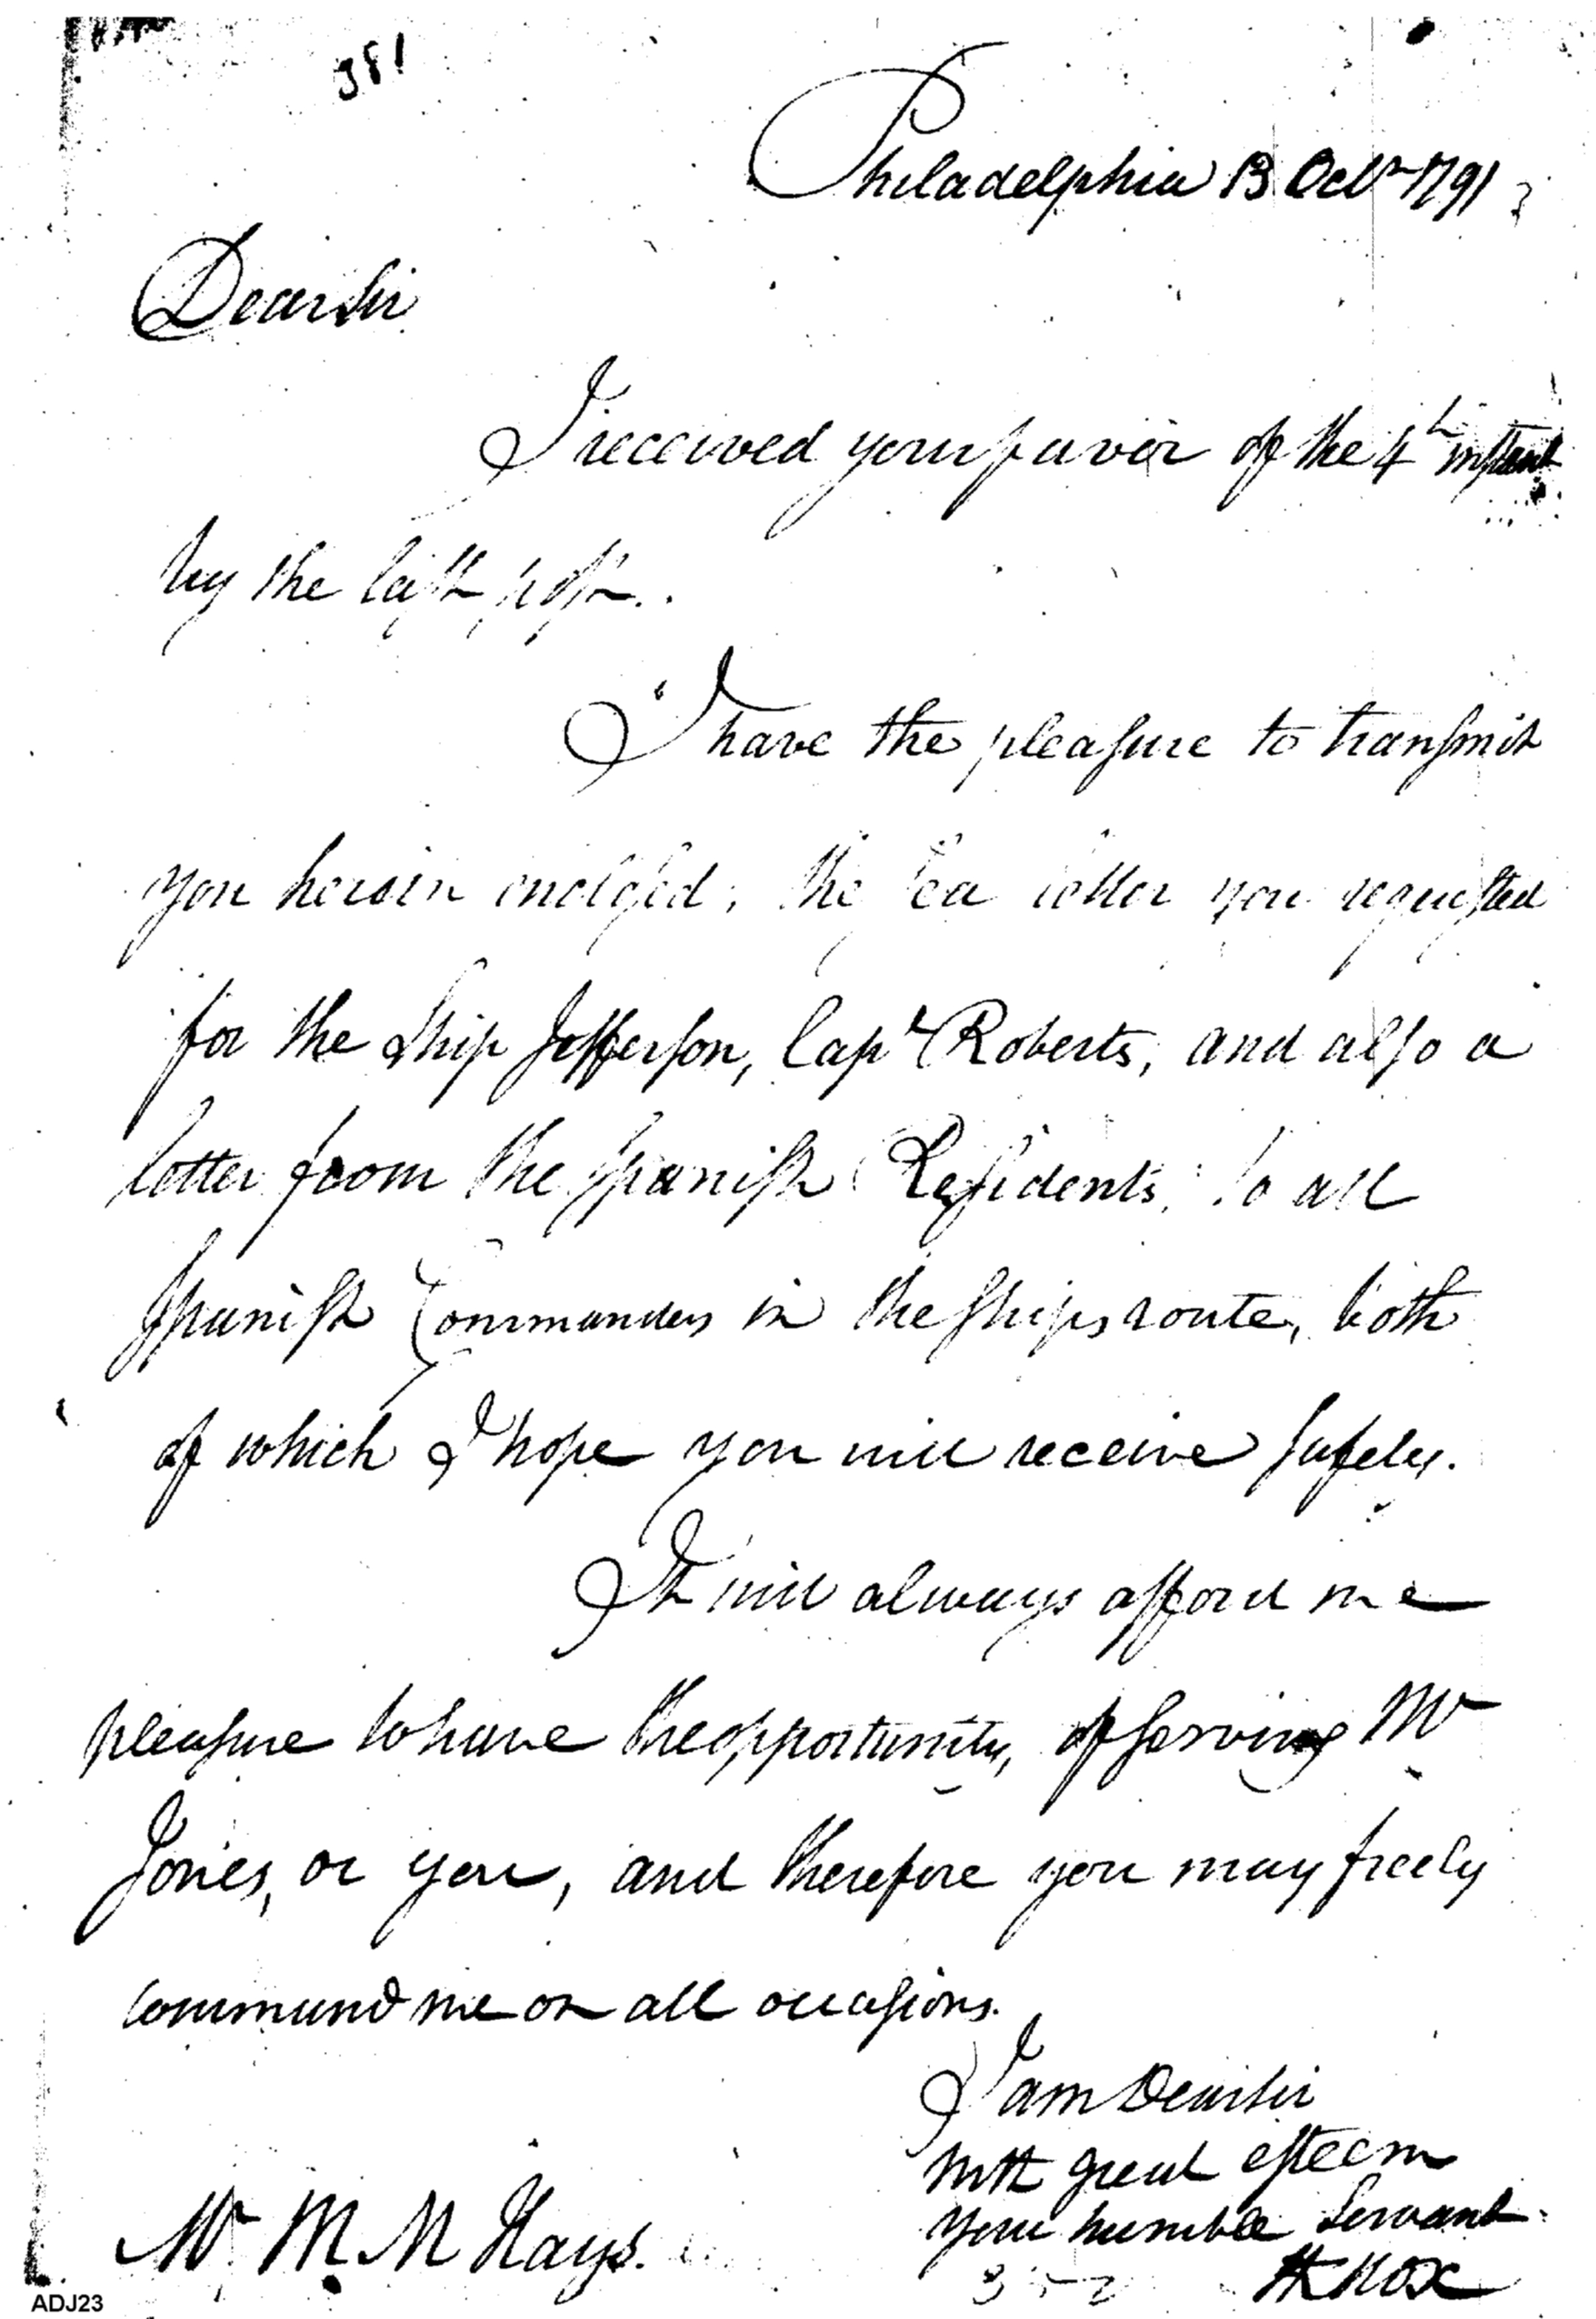 381
Philadelphia 13 Octr 1791
Dear Sir
I received your favor of the 4th instant
by the last post.
I have the pleasure to transmit
you herein enclosed, the Sea letter you requested
for the Ship Jefferson, Capt Roberts, and also a
letter from the Spanish Residents, to all
Spanish Commanders in the ships route, both
of which I hope you will receive safely.
It will always afford me
pleasure to have the opportunity, of serving Mr
Jones, or you, and therefore you may freely
command me on all occasions.
I am Dear Sir
with great esteem
your humble Servant
HKnox
Mr M. M Hays.
ADJ23